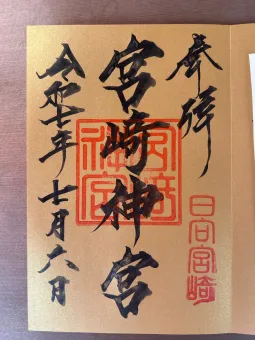 奉拝
日向宮崎
宮崎神宮
宮﨑神宮
令和七年七月六日